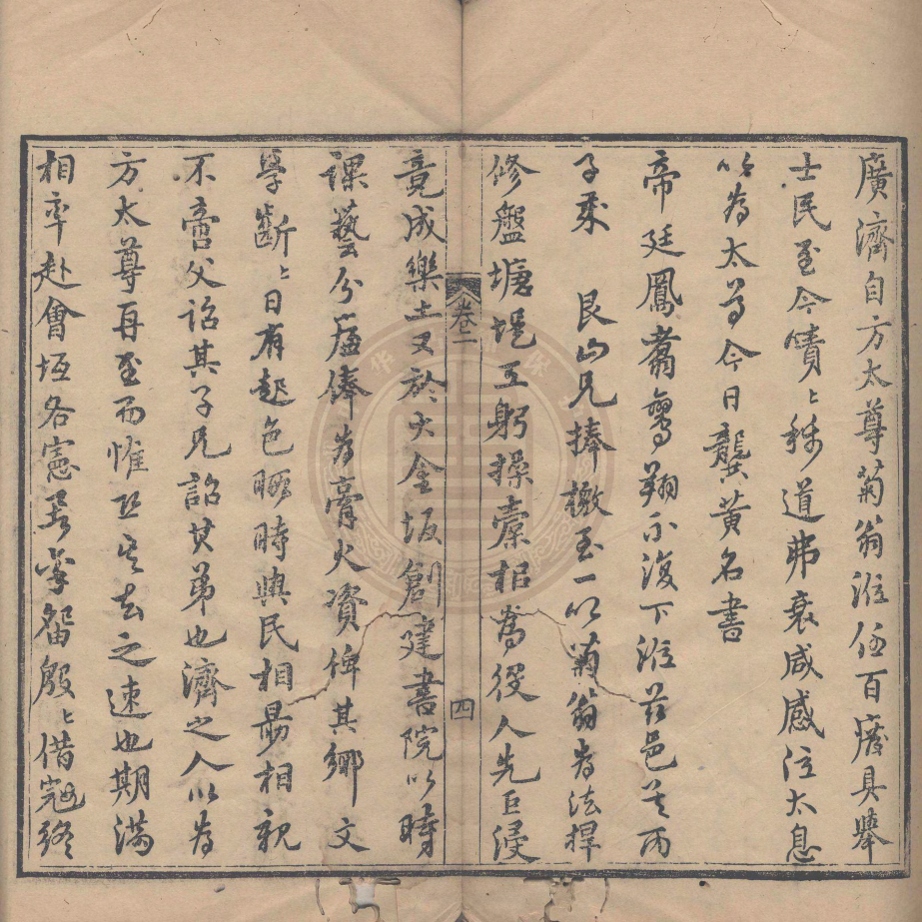 廣濟自方太尊菊翁涖任百廢具舉
士民至今嘖〻稱道弗衰咸感泣太息
以為太尊今日龔黃名書
帝廷鳳翥鸞翔不復下涖茲邑矣丙
子秉 艮山兄捧檄至一以菊翁為法捍
修盤塘堤工躬操橐梠為役人先巨浸
竟成樂土又於大金坂創建書院以時
課藝分廉俸為膏火資俾其鄉文
學斷〻日有起色暇時與民相勗相親
不啻父詔其子兄詔其弟也濟之人以為
方太尊再至而惟恐其去之速也期滿
相率赴會垣各憲吁留殷〻借寇終
卷二
四